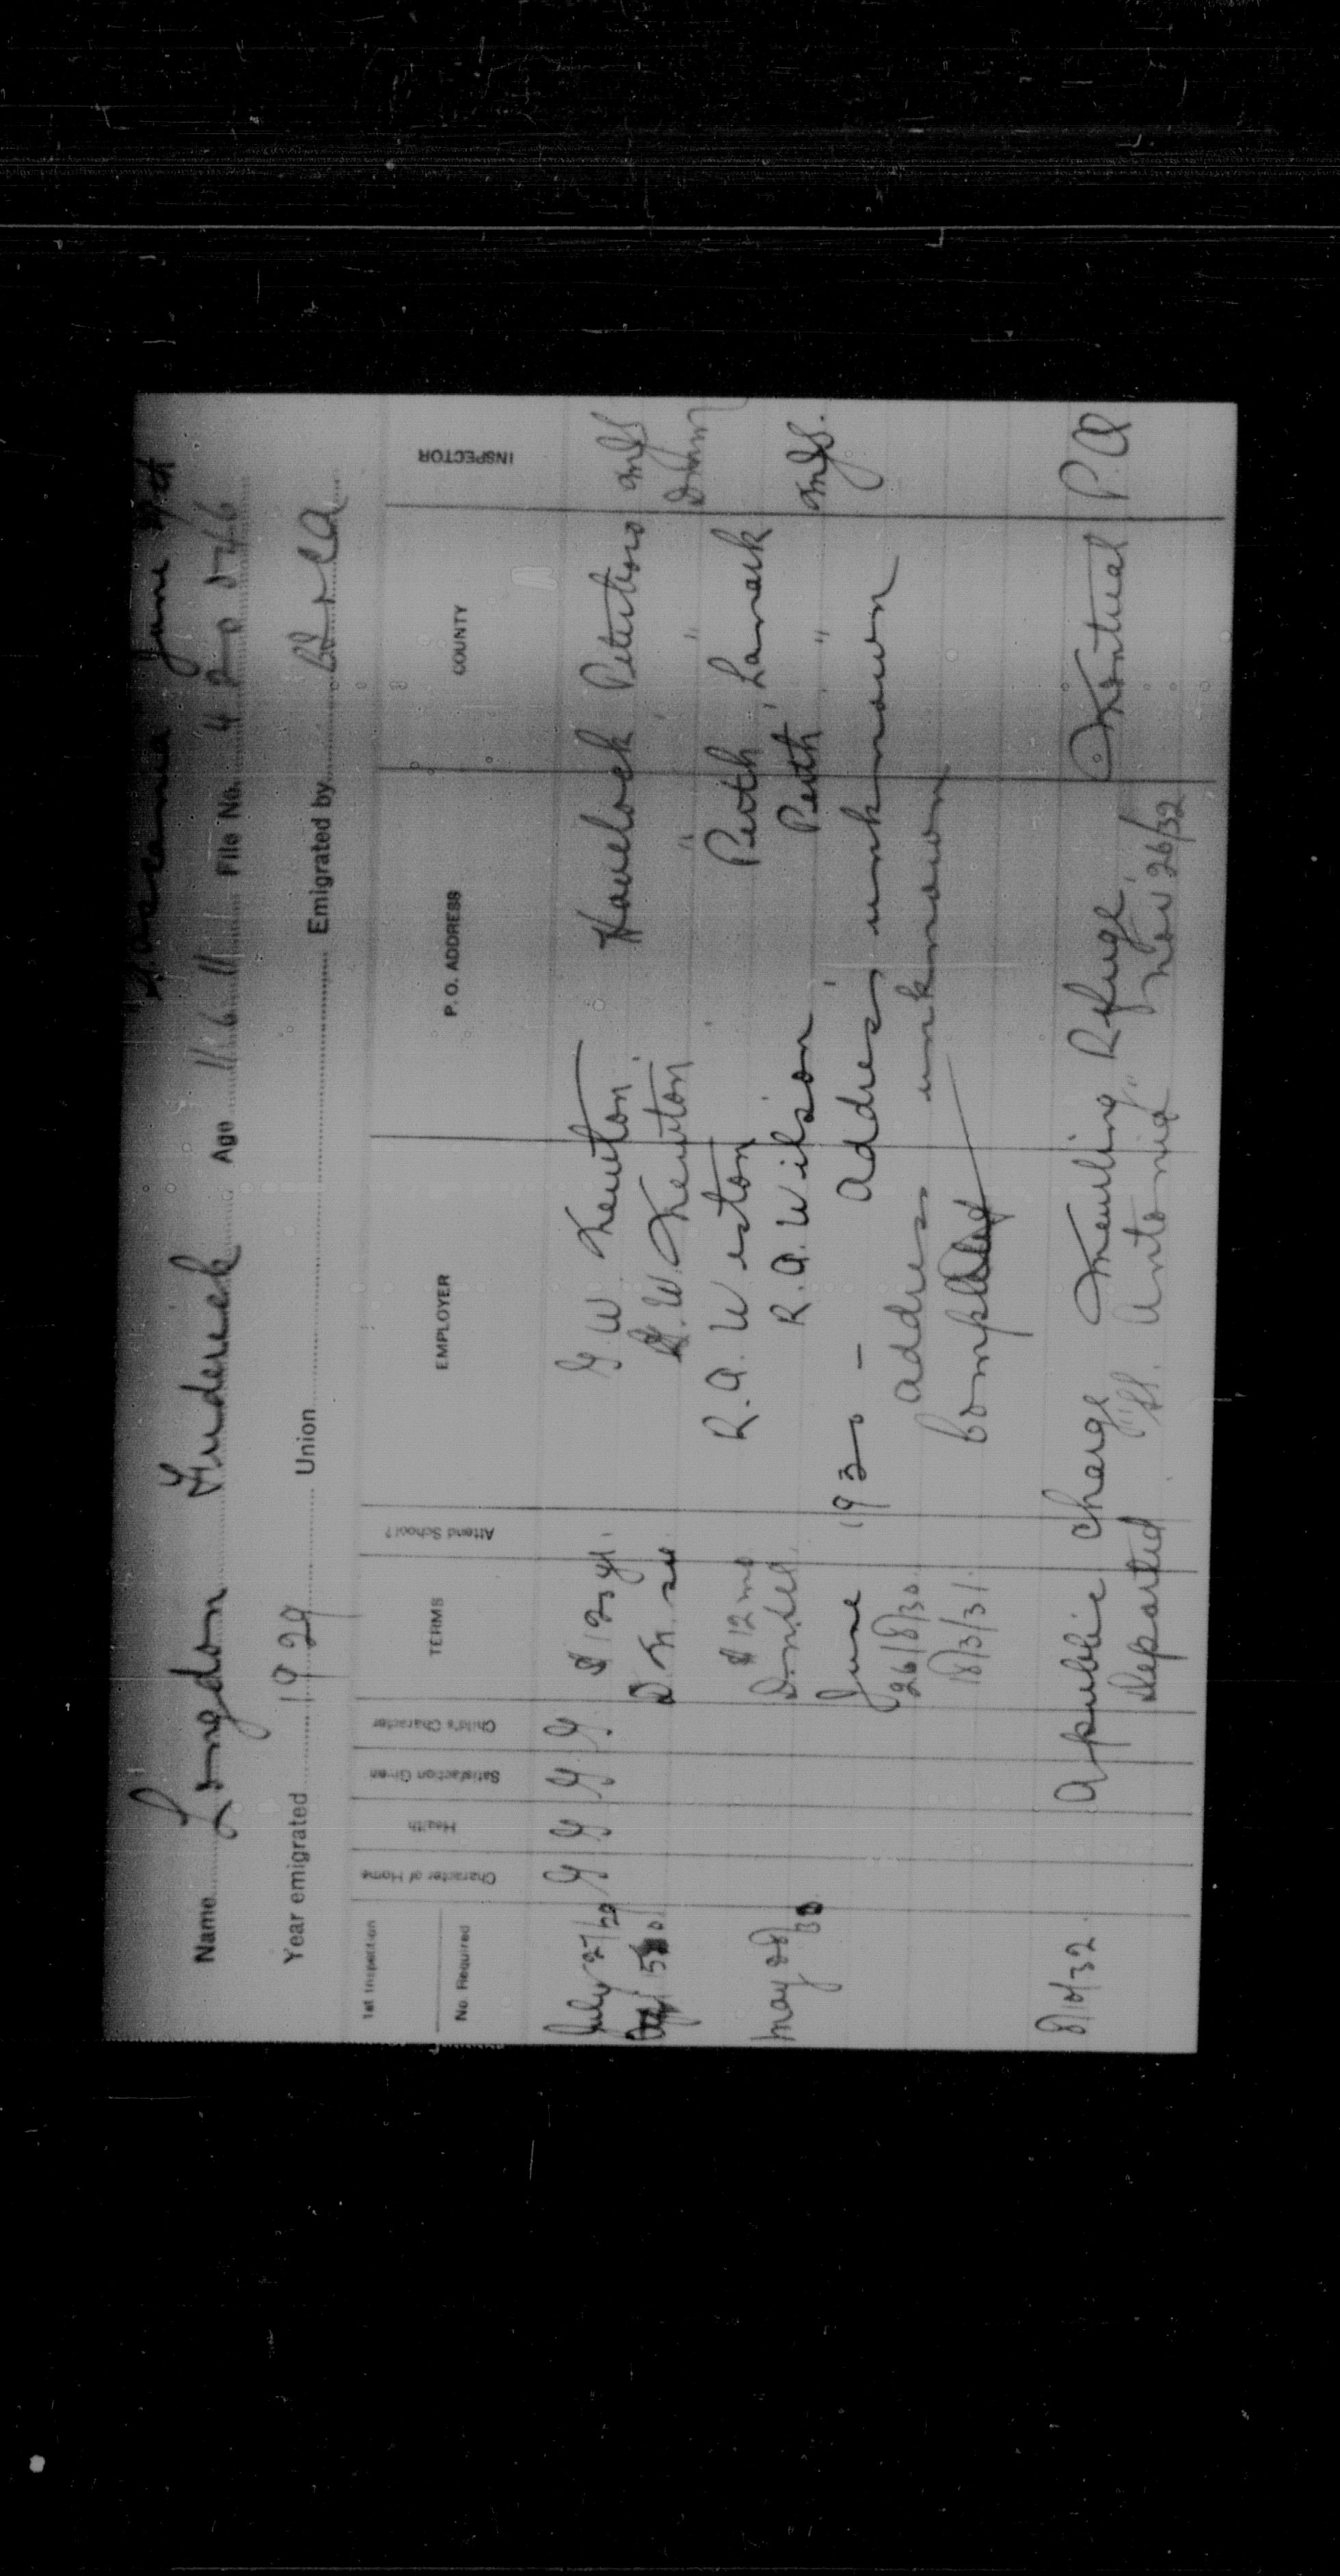 June
Name Longdon Frederick Age 16 File No.
Year emigrated 1929 Union Emigrated by
1st Inspection
No. Required Character of Home Health Satisfaction Given Child's Character TERMS Attend School? EMPLOYER P. O. ADDRESS COUNTY INSPECTOR
July 27/29 G G G G. $120 yr. G. W Newton Havelock Peterboro
G. W. Newton " "
$12 mo R. A. Weston Perth, Lanark
May 28/30 R. A. Wilson, Perth "
June 1930 - Address unknown
26/8/30. address unknown
18/3/31. Completed
8/10/32 A public charge Meurling Refuge, Montreal P.Q
Deported "SS. Antonia" Nov 26/32